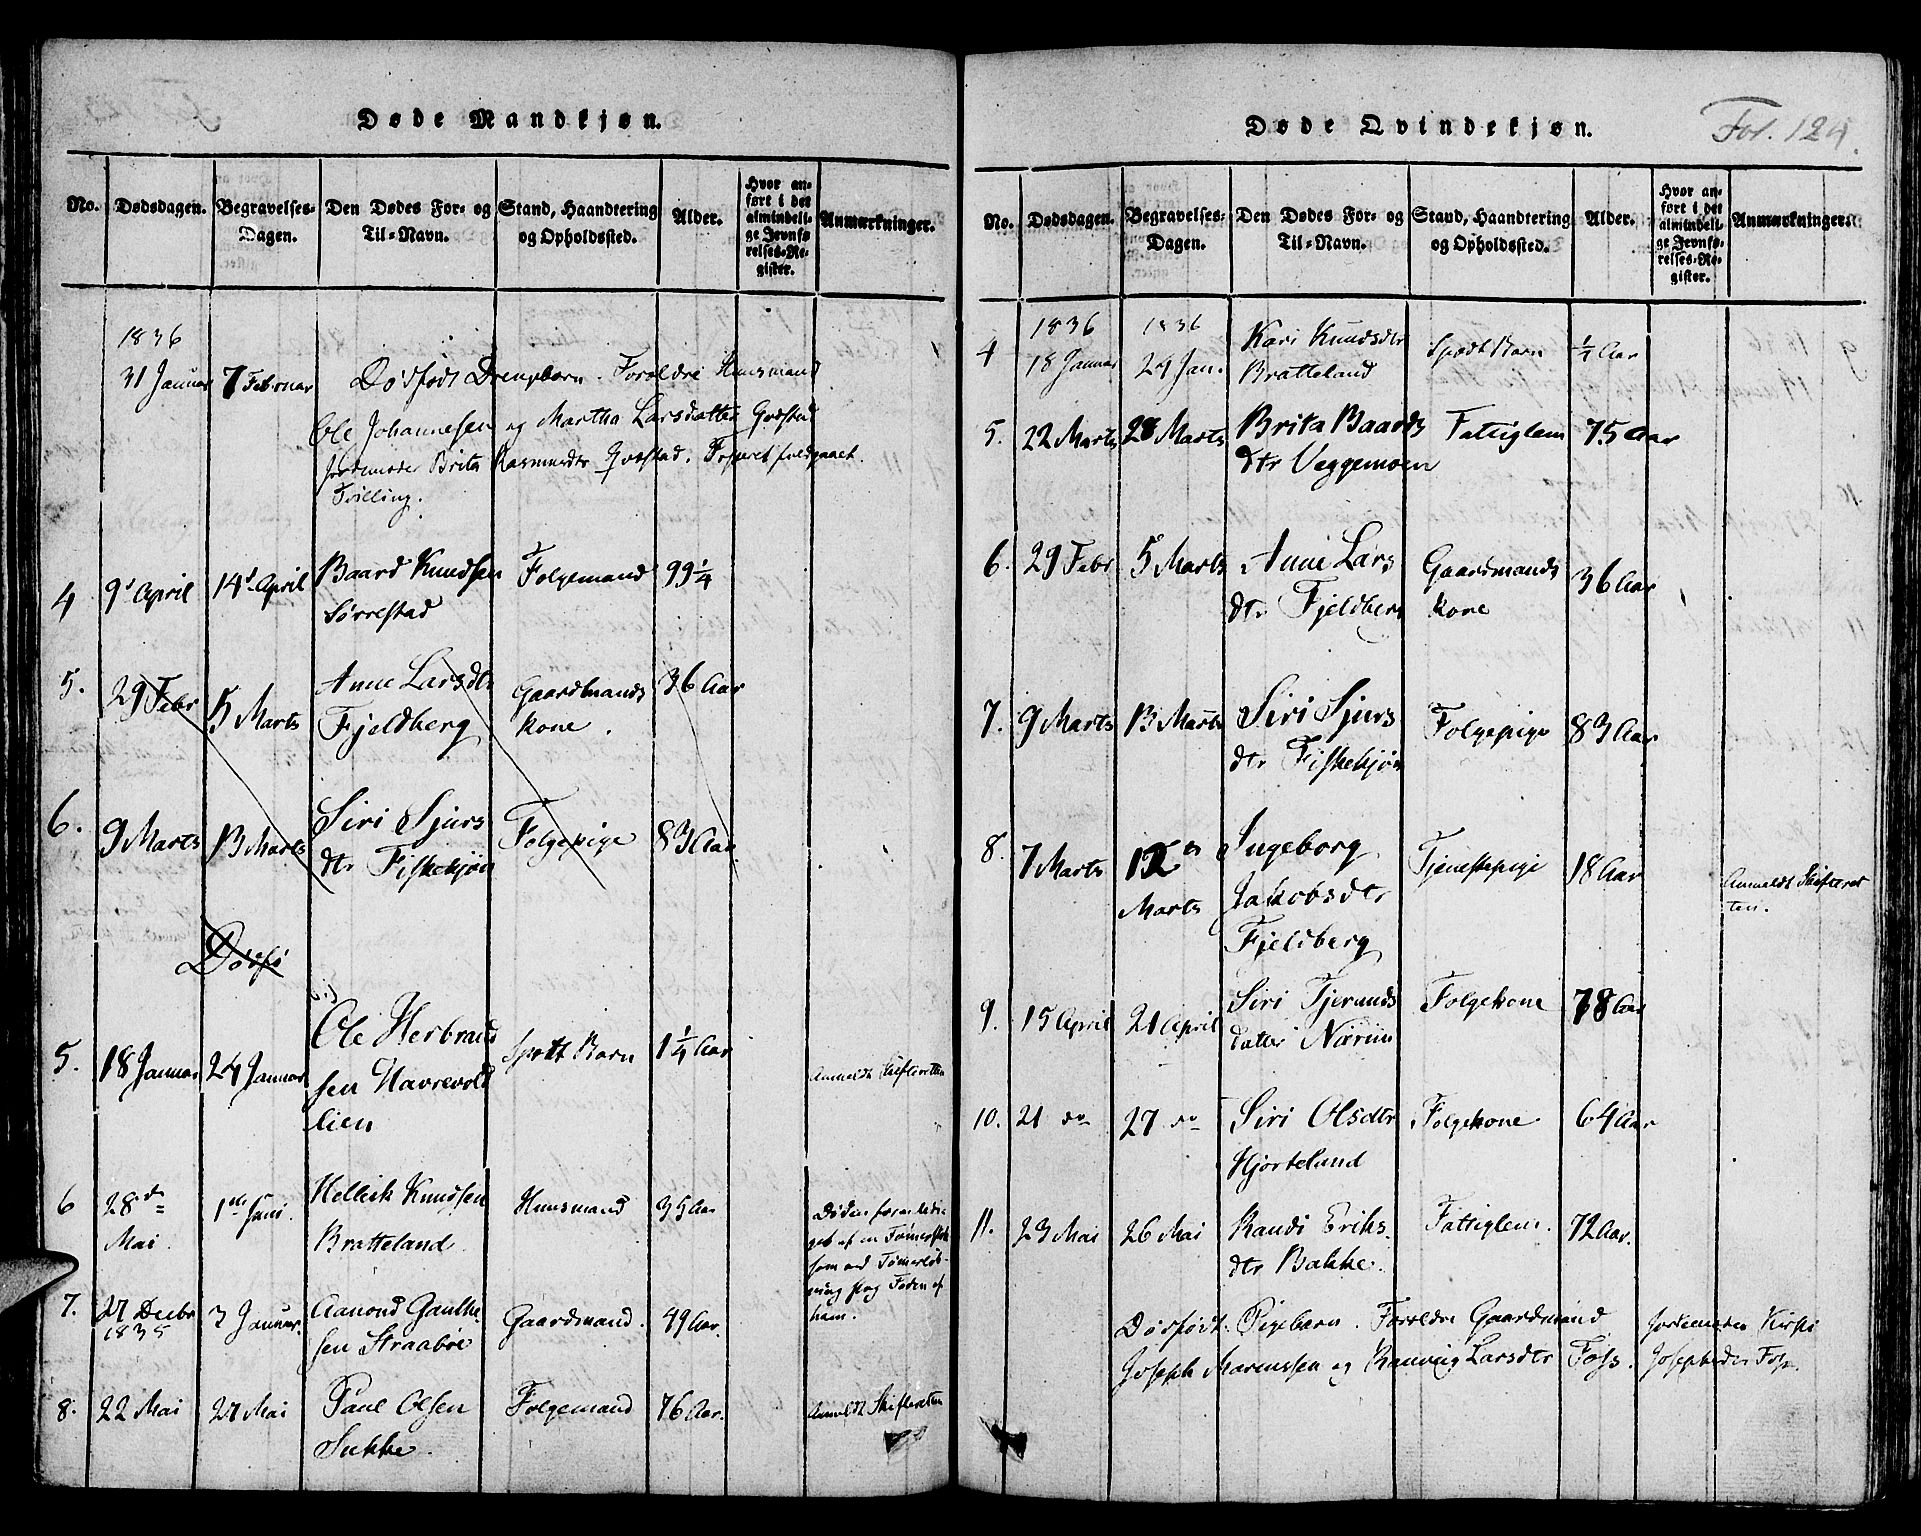 Døde Mandkjøn.
No. Dødsdagen. Begravelses-Dagen. Den Dødes For- og Til-Navn. Stand, Haandtering og Opholdssted. Alder. Hvor anført i det almindelige Jevnførelses-Register. Anmærkninger.
1836
31 Januar 7 Februar Dødfødt Drengbarn. Forældre Huusmand
Ole Johannesen og Martha Larsdatter Qvæstad
Jordmoder Brita Rasmusdtr Qvæstad. Fosteret fuldgaaet.
Tvilling.
4 9d April 14d April Baard Knudsen Folgemand 99 1/4
Sørrestad
5. 29 Febr 5 Marts Anne Larsdtr Gaardmands 36 Aar
Fjeldberg kone.
6. 9 Marts 13 Marts Siri Sjurs Folgepige 83 Aar.
dtr Fiskekjøn
Dødfø
5. 18 Januar 24 Januar Ole Herbrand Spødt Barn 1 1/4 Aar Anmeldt Skifteretten
sen Havrevold
lien
6 28de Mai. 1ste Juni. Hellik Knudsen Huusmand 35 Aar
Bratteland.
Døden foranledi-
get af en Tømmerstok
som ved Tømmerløb-
ning slog Foden af
ham.
7. 27 Decbr 1835 3 Januar. Aamond Gaulke Gaardmand. 49 Aar.
sen Straabøe
8. 22 Mai 27 Mai Paul Olsen Folgemand 76 Aar. Anmeldt Skifteretten
Sukke.
Døde Qvindekjøn.
Fol. 124.
No. Dødsdagen. Begravelses-Dagen. Den Dødes For- og Til-Navn. Stand, Haandtering og Opholdssted. Alder. Hvor anført i det almindelige Jevnførelses-Register. Anmærkninger.
1836 1836
4 18 Januar 24 Jan. Kari Knudsdtr Spædt Barn 1/4 Aar
Bratteland
5. 22 Marts 28 Marts Brita Baards Fattiglem 75 Aar
dtr Veggemoen
6. 29 Febr 5 Marts Anne Lars Gaardmands 36 Aar
dtr Fjeldberg kone
7. 9 Marts 13 Marts Siri Sjurs Folgepige 83 Aar
dtr Fiskekjøn
8. 7 Marts 12en Marts Ingeborg Tjenestepige 18 Aar Anmeldt Skifteret
Jakobsdtr ten.
Fjeldberg
9. 15 April 21 April Siri Tjerands Folgekone 78 Aar
datter Nærim
10. 21 do 27 do Siri Olsdtr Folgekone 64 Aar
Hjorteland
11. 23 Mai 26 Mai Randi Eriks Fattiglem. 72 Aar.
dtr Bakke.
Dødfødt Pigebarn. Forældre Gaardmand Jordemoder Kirsti
Joseph og Ranveig Larsdtr Foss. Josephsdtr Foss.